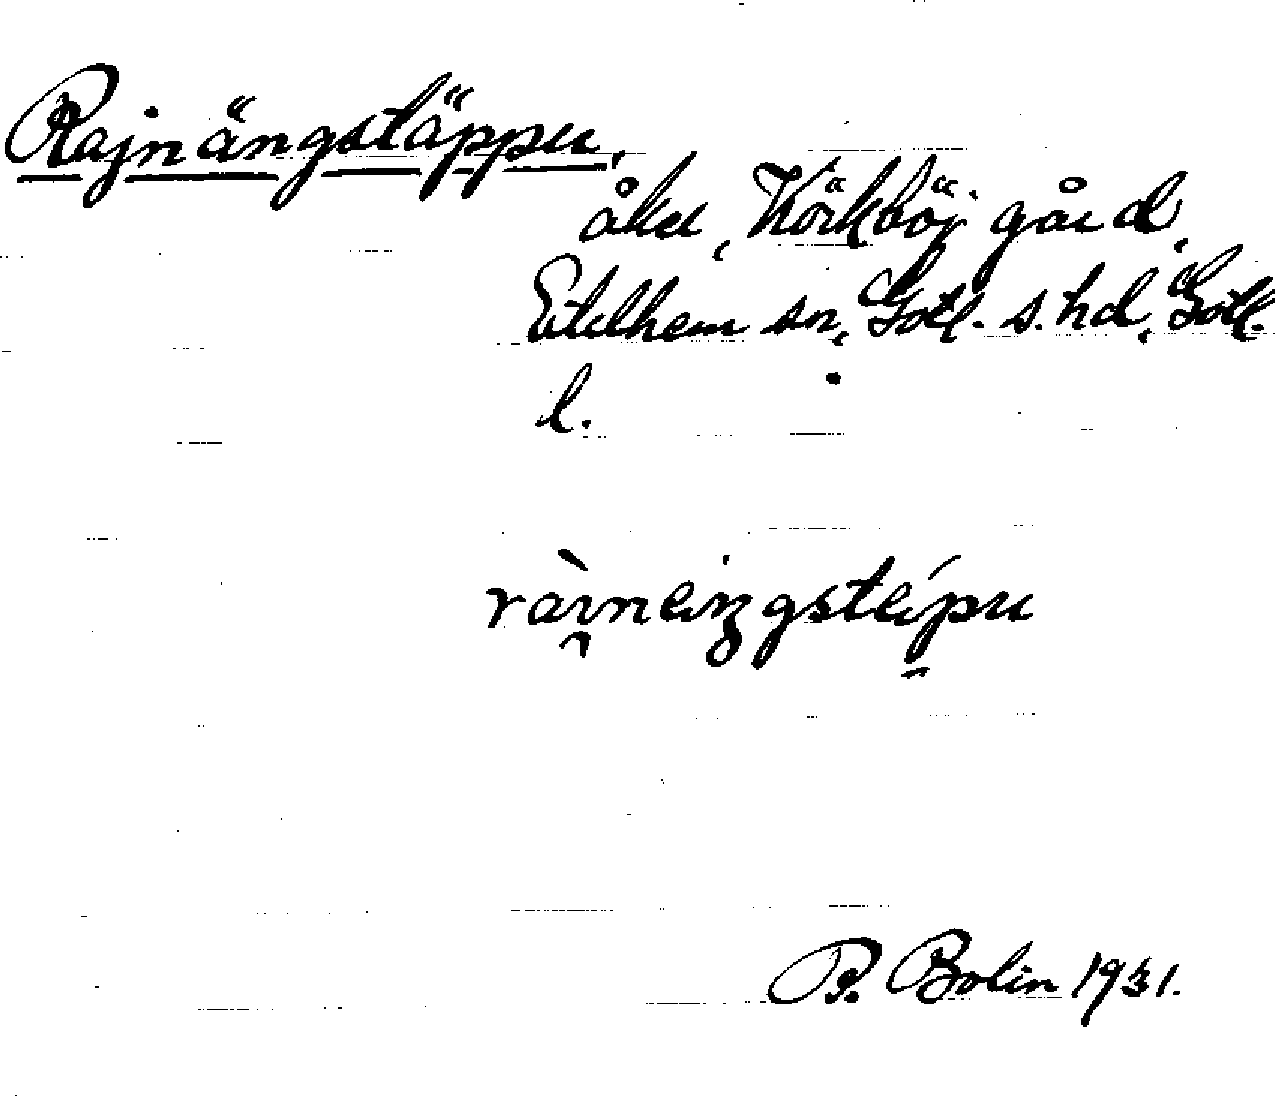 Rajnängstäppu,
åker, Körkböj gård,
Etelhem sn, Gotl. s. hd, Gotl.
l.
P. Bolin 1931.